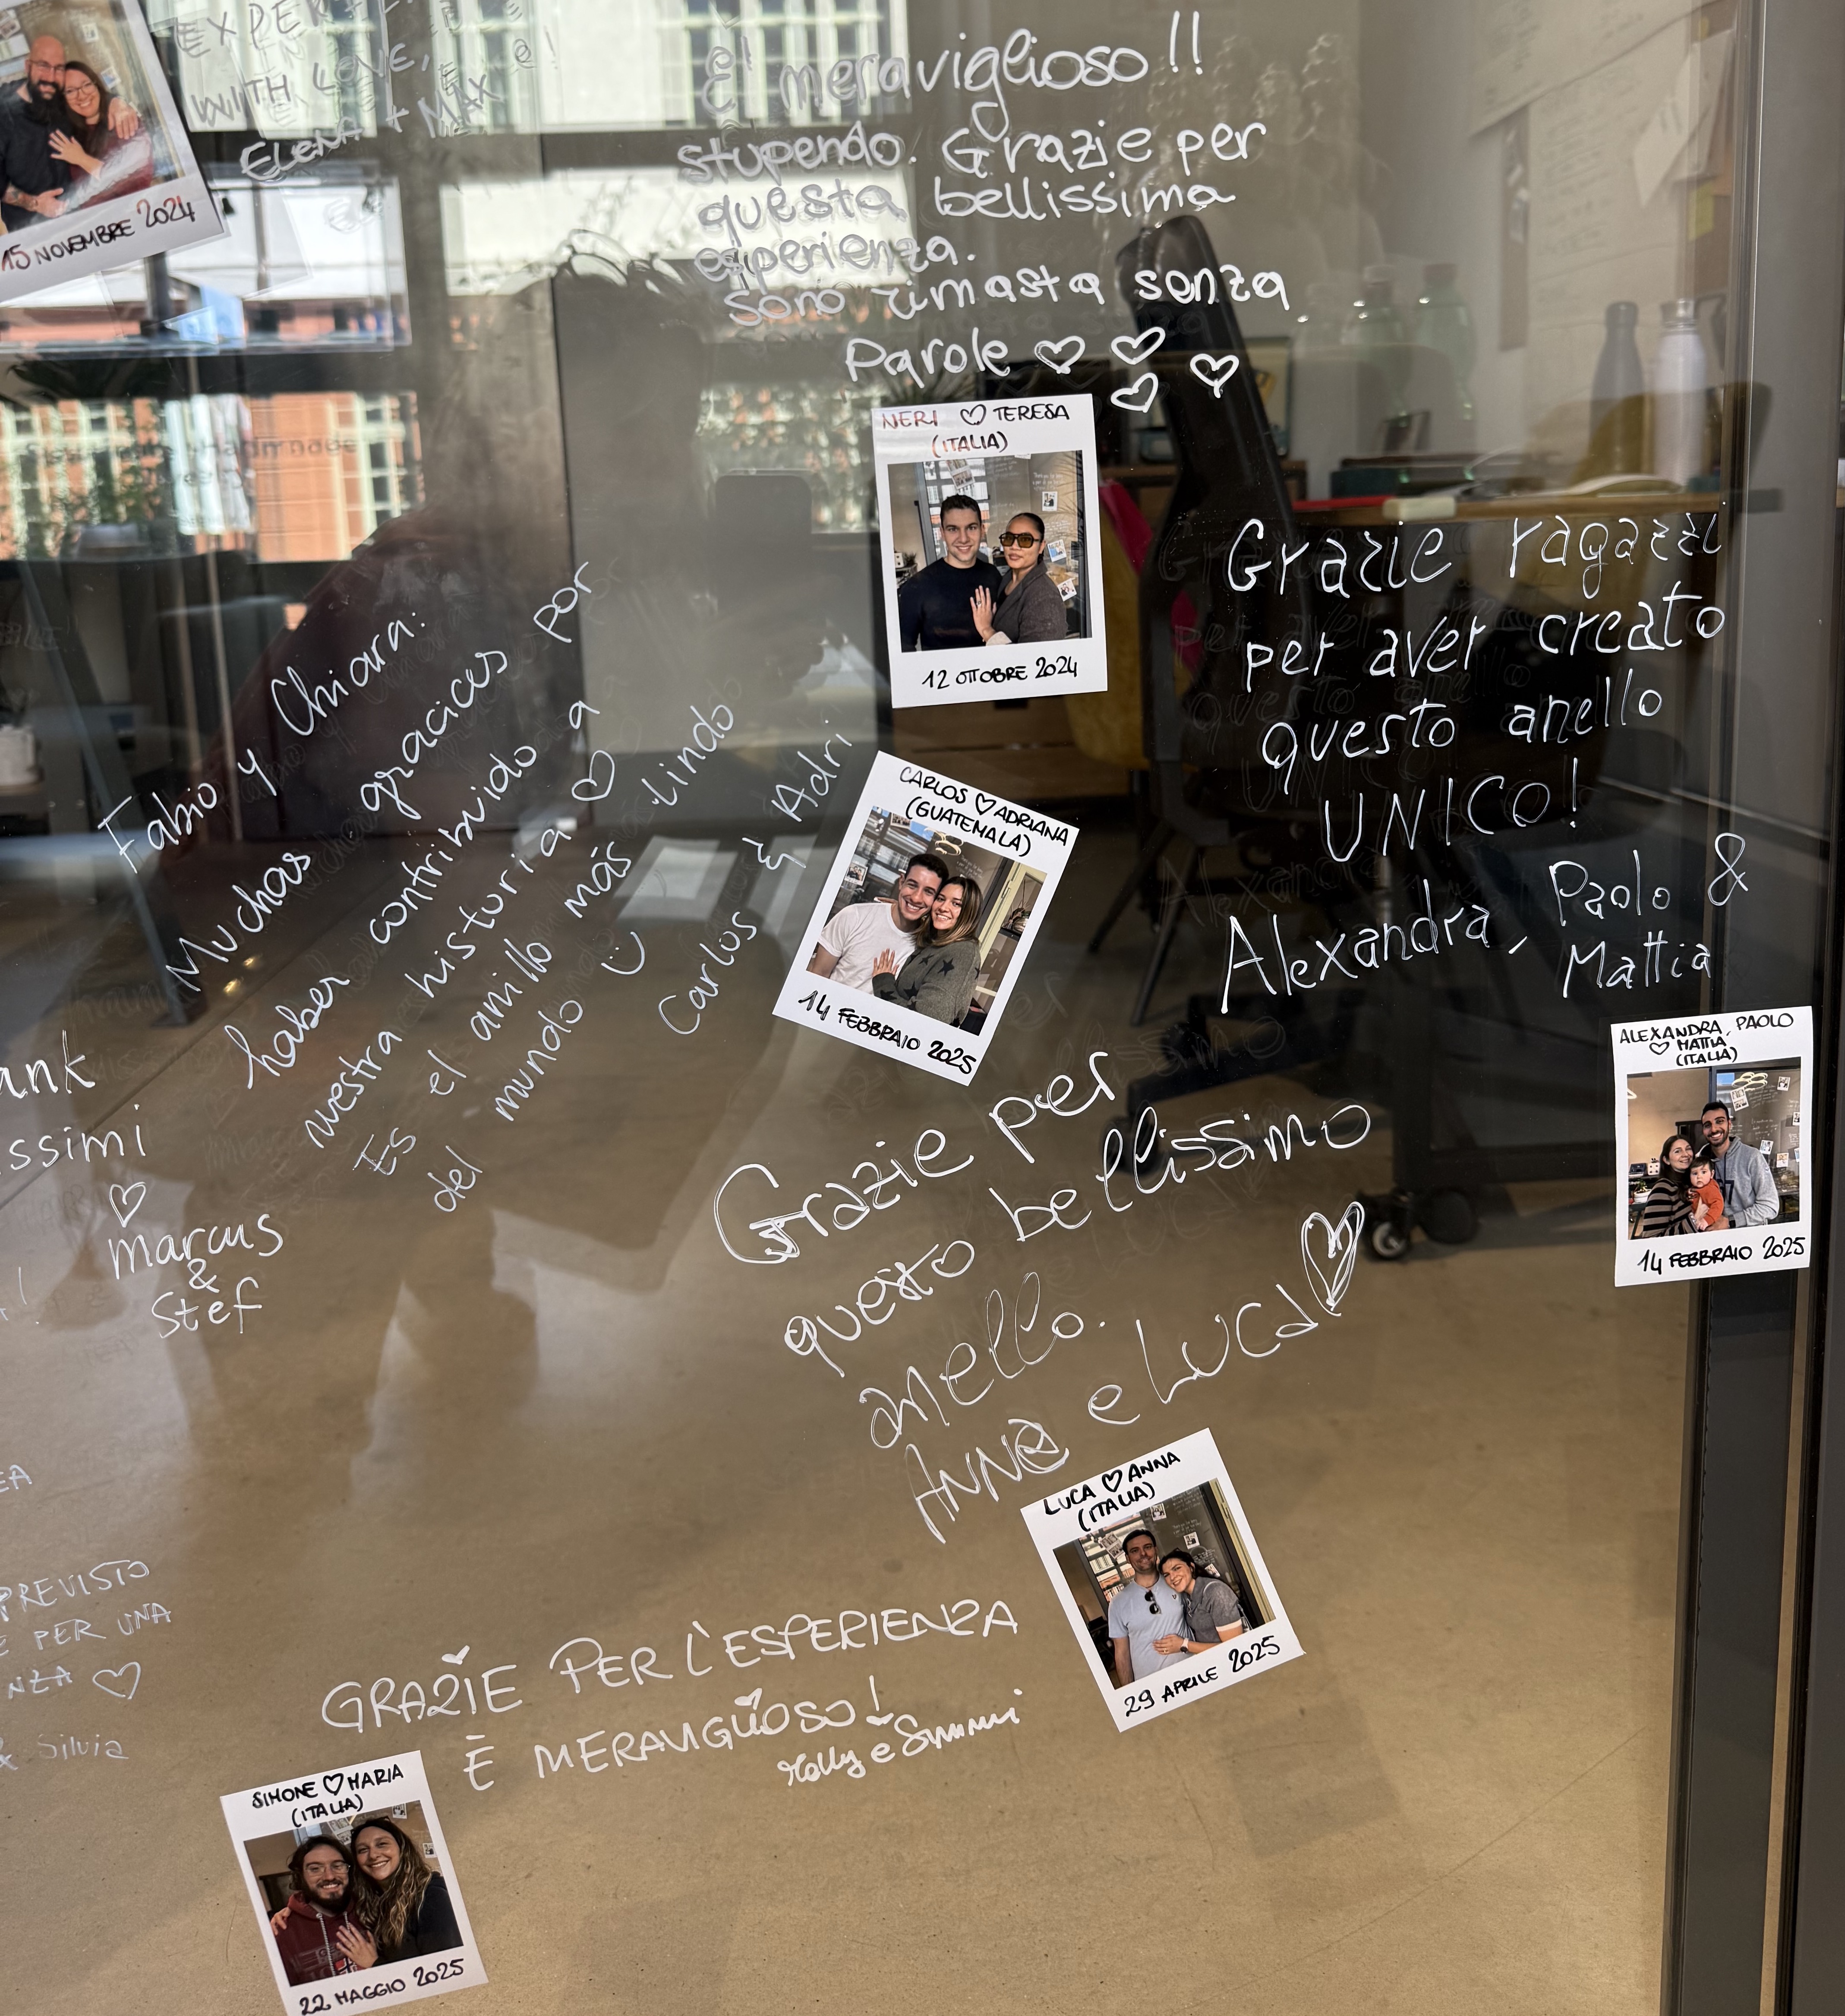 WITH LOVE,
ELENA + MAX
15 NOVEMBRE 2024
E' meraviglioso!!
stupendo. Grazie per
questa bellissima
esperienza.
sono rimasta senza
Parole ♡ ♡ ♡ ♡
NERI ♡ TERESA
(ITALIA)
12 OTTOBRE 2024
Fabio y Chiara:
Muchas gracias por
haber contribuido a
nuestra historia ♡
Es el anillo más lindo
del mundo
Carlos & Adri
CARLOS ♡ ADRIANA
(GUATEMALA)
14 FEBBRAIO 2025
Grazie ragazzi
per aver creato
questo anello
UNICO!
Alexandra, Paolo &
Mattia
ALEXANDRA, PAOLO
♡ MATTIA
(ITALIA)
14 FEBBRAIO 2025
♡
Marcus
&
Stef
Grazie per
questo bellissimo
anello.
ANNA e LUCA ♡
LUCA ♡ ANNA
(ITALIA)
29 APRILE 2025
PREVISTO
E PER UNA
♡
& Silvia
GRAZIE PER L'ESPERIENZA
È MERAVIGLIOSO!
SIMONE ♡ MARIA
(ITALIA)
22 MAGGIO 2025